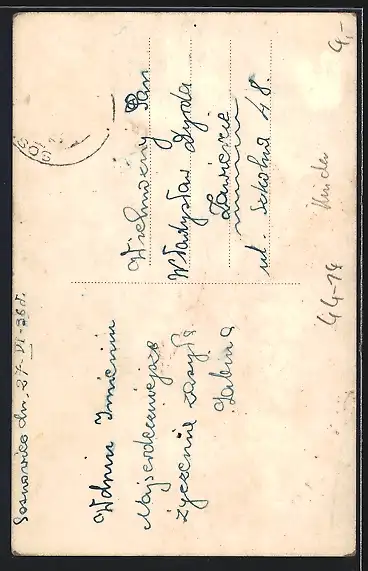 Sosnowiec dn. 27-VI-36 r.
W dniu Imienin
Najserdeczniejsze
życzenie zasyła
Sabina
Wielmożny Pan
Władysław Dyrda
Zawiercie
ul. Szkolna 48.
Kinder
44-14
4,-